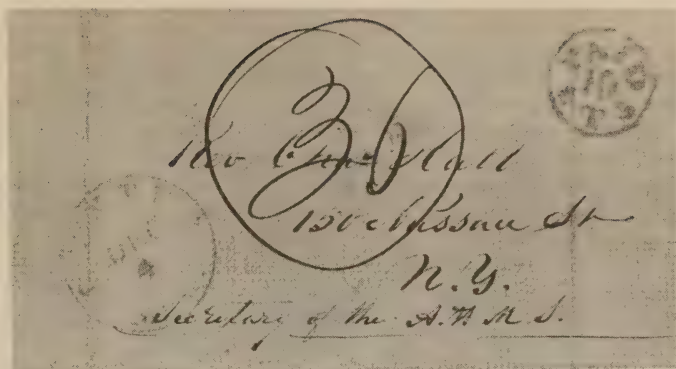 PAID
10
CTS
36
Rev Hall
150 Nassau St
N.Y.
Secretary of the A.H.M.S.